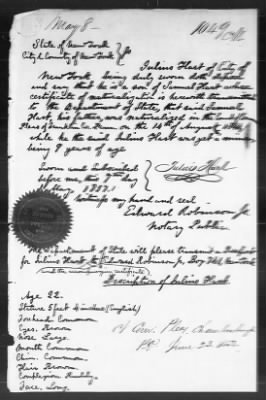 May 8—
10499
State of New York
City & County of New York
Julius Hart of City of
New York being duly sworn doth depose
and say that he is a son of Samuel Hart whose
certificate of naturalization is herewith transmitted
to the Department of State, that said Samuel
Hart, his father, was naturalized in the Court of Common
Pleas of on the 14th of August
while he the said Julius Hart was yet a minor
being 8 years of age
Sworn and Subscribed
before me, this 7th day
May 1883
Julius Hart
Witness my hand and seal
Edward Robinson Jr
Notary Public
The Department of State will please transmit a Passport
for Julius Hart to Edward Robinson Jr, Box New York
and the certificate
Description of Julius Hart
Age 22.
Stature 5 feet inches (English)
Forehead Common
Eyes. Brown
Nose Large
Mouth Common
Chin. Common.
Hair Brown.
Complexion Ruddy.
Face. Long.
Com. Pleas
June 22